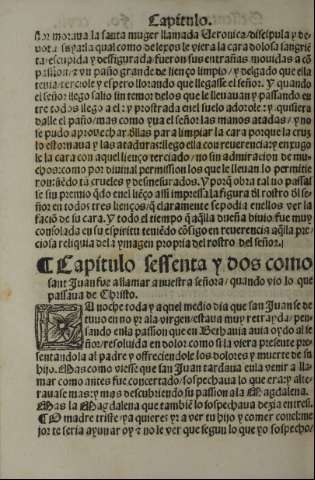 Capitulo.
ñor moraua la santa muger llamada Ueronica discipula y de
uota suya: la qual como de lexos le viera la cara dolosa sangriē
ta escupida y desfigurada / fueron sus entrañas mouidas a cō
passion / z vn paño grande de lienço limpio / y delgado que ella
tenia terciole y espero llorando que llegasse el señor. Y quando
el señor llego salio sin temor delos que le lleuauan y passando en
tre todos llego a el: y prostrada enel suelo adorole: y quisiera
dalle el paño / mas como yua el señor las manos atadas / y no
se pudo aprouechar dllas para limpiar la cara porque la cruz
lo estoruaua y las ataduras: llego ella con reuerencia: y enxugo
le la cara con aquel lienço terciado / no sin admiracion de mu
chos: como por diuinal permission los que le lleuauan lo permitie
ron: siēdo tā crueles y desmesurados. Y porq̄ obra tal no passas
se sin premio q̄do enel liēço assi impressa la figura dl rostro dl se
ñor en todos tres lienços q̄ claramente se podia enellos ver la
faciō de su cara. Y todo el tiempo q̄ aq̄lla dueña biuio fue muy
consolada en su espiritu teniēdo cōsigo en reuerencia aq̄lla pre
ciosa reliquia dela ymagen propia del rostro del señor.
¶ Capitulo sessenta y dos como
sant Juan fue a llamar a nuestra señora / quando vio lo que
passaua de Christo.
LA noche toda y aquel medio dia que san Juan se de
tuuo en no yr a la virgen / estaua muy retrayda / pen
sando enla passion que en Bethania auia oydo al se
ñor / resoluida en dolor como si la viera presente pre
sentandola al padre y offreciendole los dolores y muerte de su
hijo. Mas como viesse que san Juan tardaua enla venir a lla
mar como antes fue concertado / sospechaua lo que era: y alte
rauase mas: y mas descubriendo su passion ala Magdalena.
Mas la Magdalena que tambiē lo sospechaua dezia entre si.
¶ O madre triste / ya quieres yr a ver tu hijo y comer conel: me
jor te seria ayunar oy z no le ver segun lo que yo sospecho /